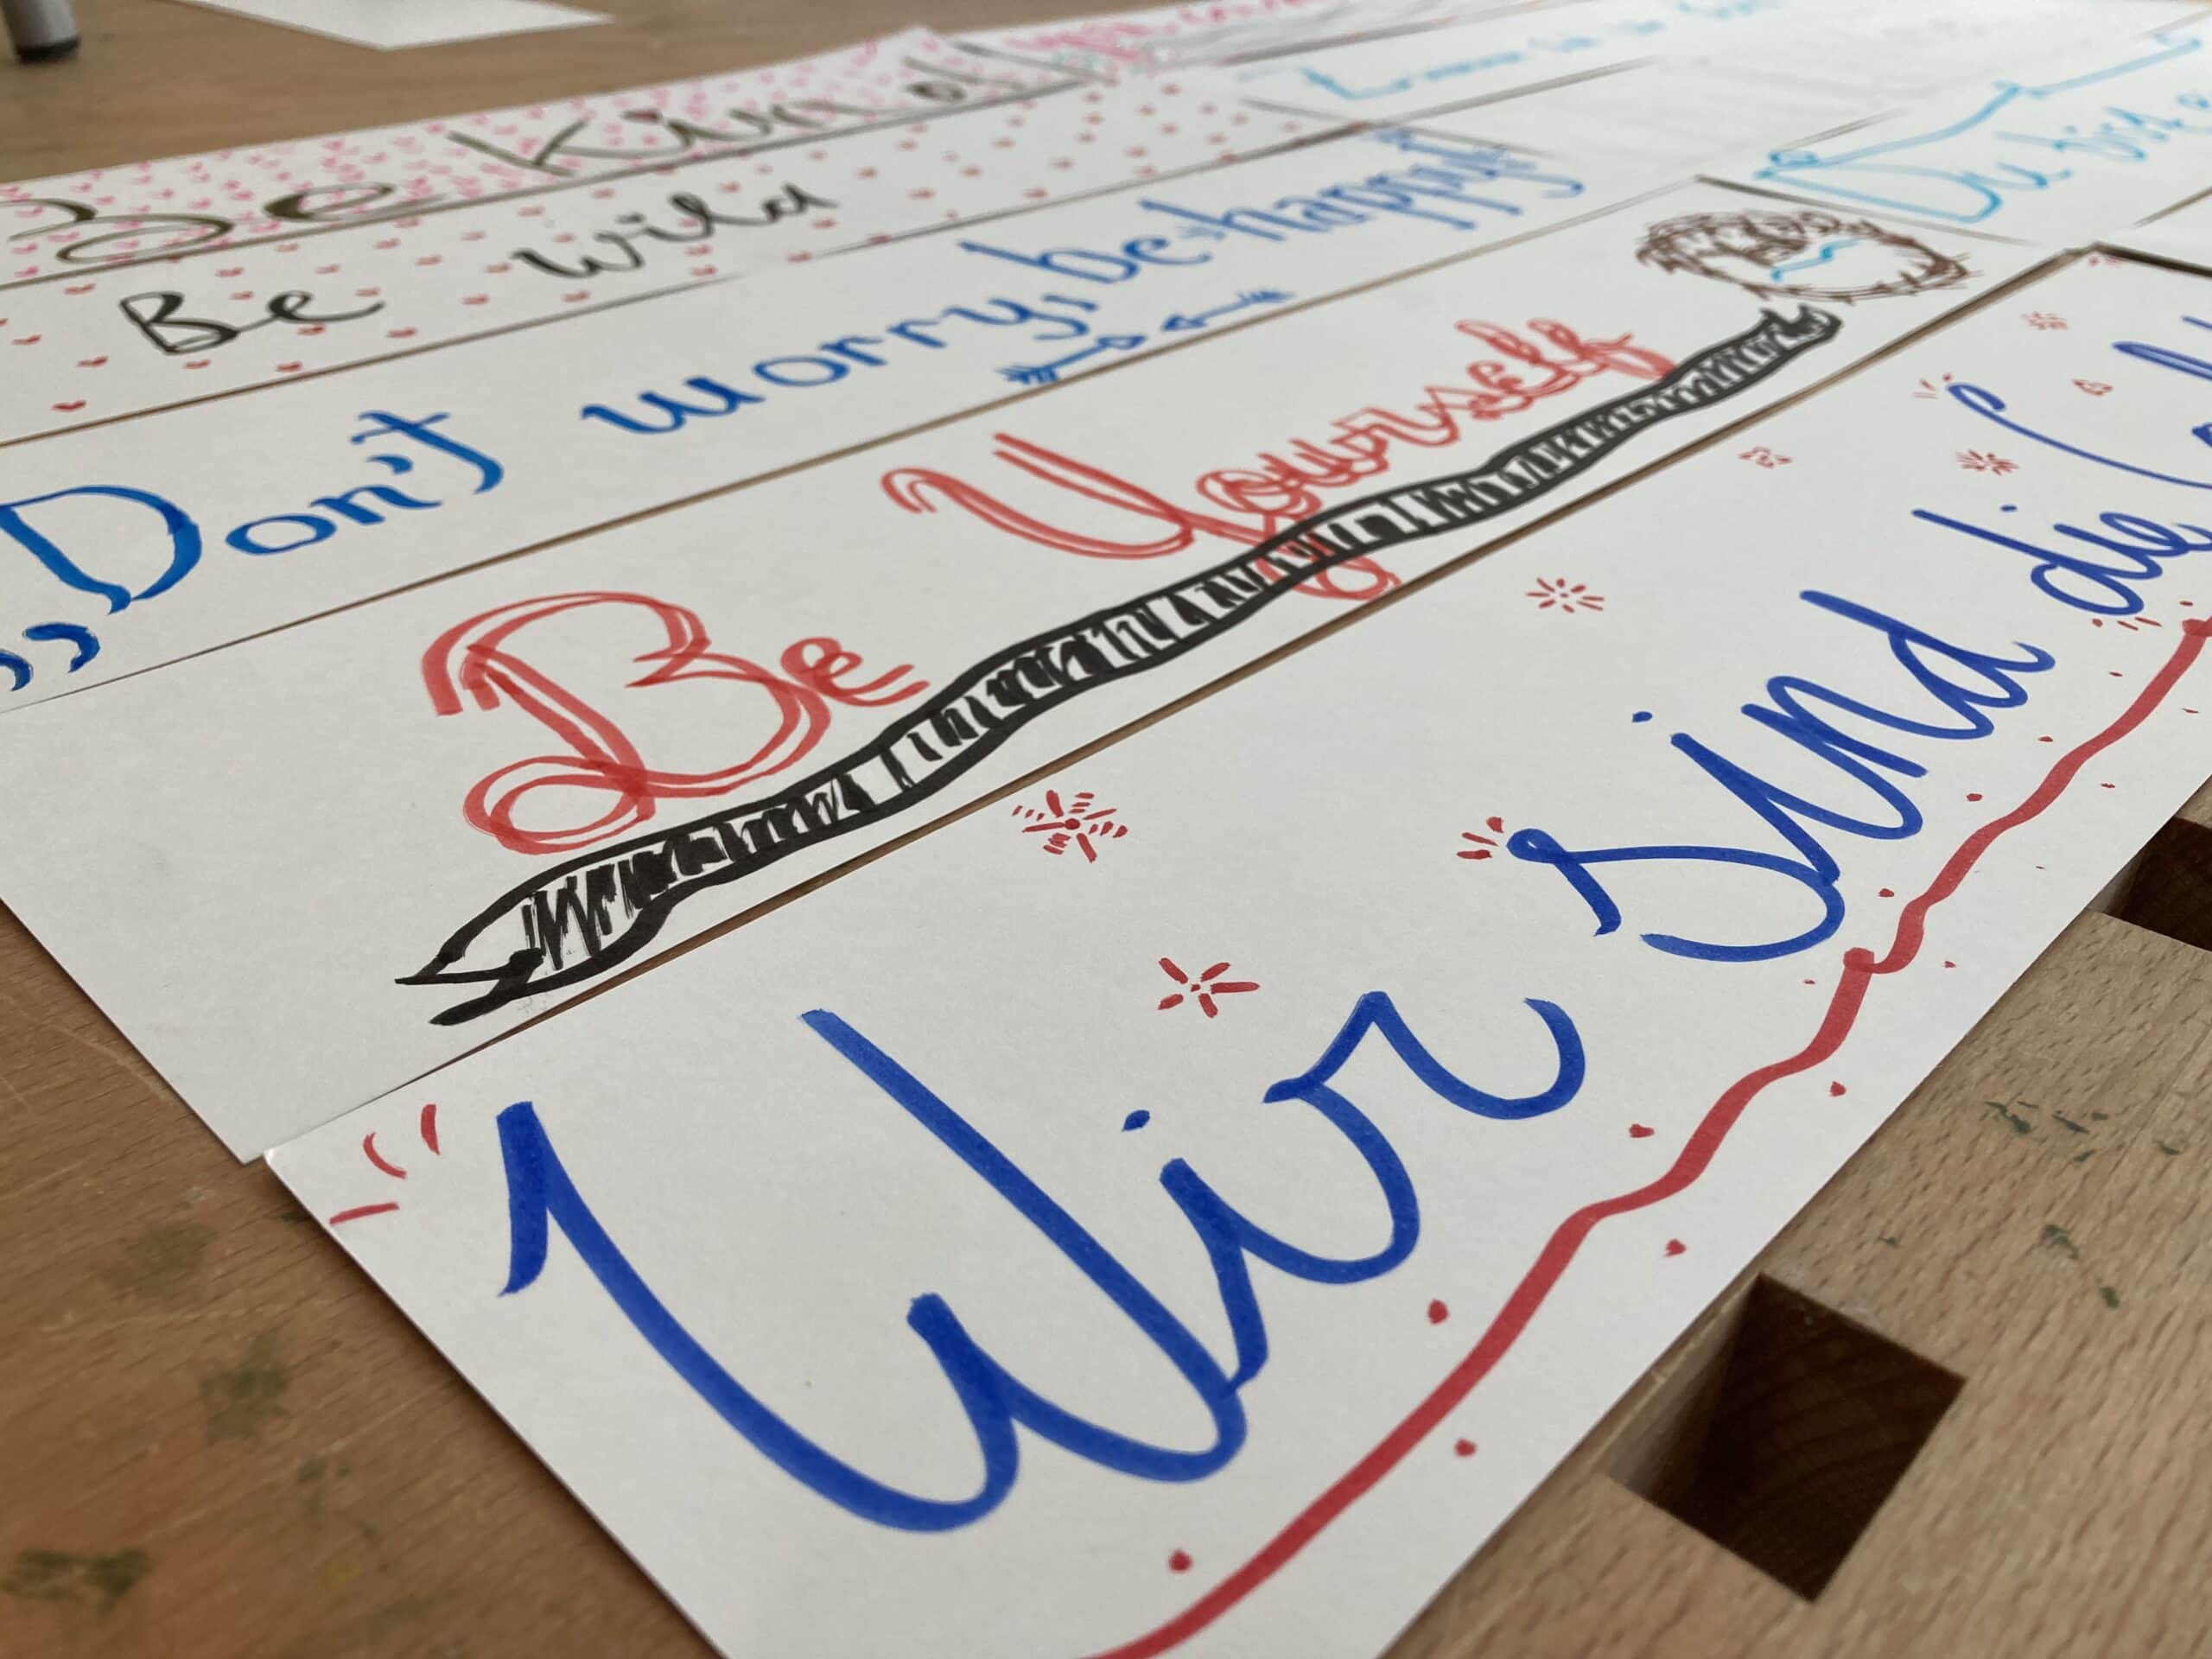 Be kind
Be wild
„Don't worry, be happy!
Be Yourself
Du bist
Wir sind die